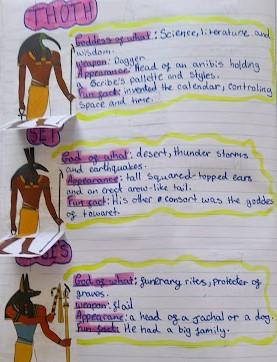 THOTH
Goddess of what: Science, literature and
wisdom.
weapon: Dagger
Appearance: Head of an anibis holding
a Scribe's pallette and styles.
Fun fact: invented the calendar, controling
space and time.
SET
God of what: desert, thunder storms
and earthquakes.
Appearance: tall squared-topped ears
and an erect arow-like tail.
Fun fact: His other consort was the goddes
of tawaret.
God of what: funerary rites, protecter of
graves.
weapon: flail
Appearane: a head of a jachal or a dog.
Fun fact: He had a big family.